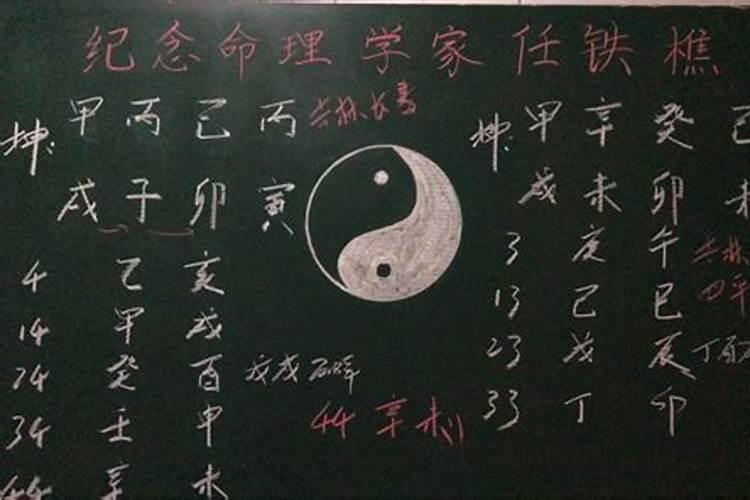 纪念命理学家任铁樵
坤: 甲 丙 己 丙 吉林长春
戌 子 卯 寅
4 乙 亥
14 甲 戌
24 癸 酉 戊戌
34 壬 申
44 辛 未
44 辛未
坤: 甲 辛 癸 己
戌 未 卯 未
3 庚 午 吉林四平
13 己 巳
23 戊 辰 丁酉
33 丁 卯